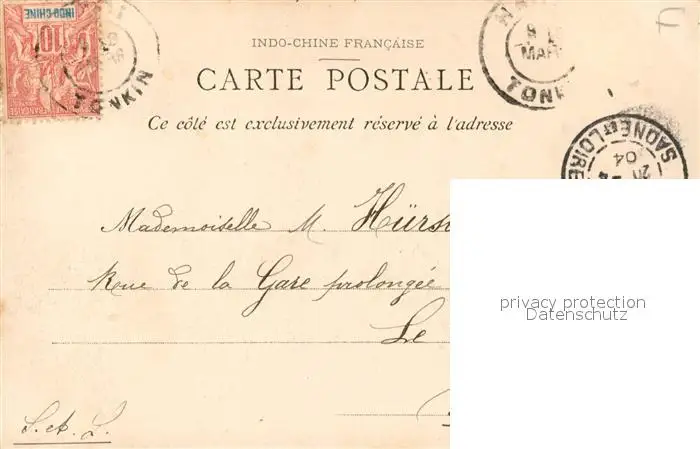 INDO-CHINE
10
FRANÇAISE
TONKIN
INDO-CHINE FRANÇAISE
CARTE POSTALE
Ce côté est exclusivement réservé à l'adresse
MAR
TONK
SAONE ET LOIRE
04
F
Mademoiselle M. Hürs
Rue de la Gare prolongée
Le
S. et L.
privacy protection
Datenschutz